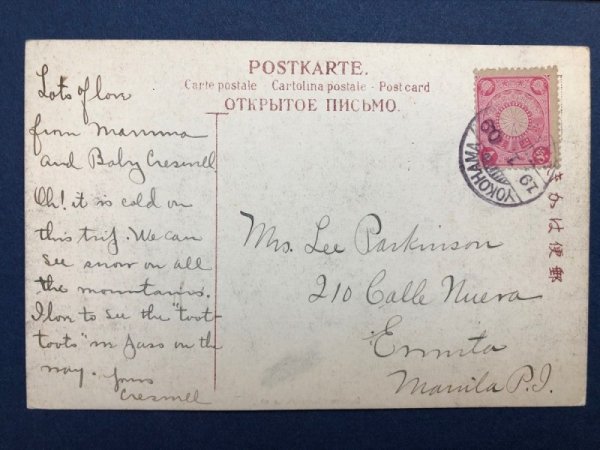 POSTKARTE.
Carte postale - Cartolina postale - Postcard
ОТКРЫТОЕ ПИСЬМО.
Lots of love
from Mamma
and Baby Creswell
Oh! it is cold on
this trip. We can
see snow on all
the mountains.
I love to see the "toot-
toots" in pass on the
way. Yours
Creswell
Mrs. Lee Parkinson
210 Calle Nueva
Ermita
Manila P.I.
YOKOHAMA
19
09
郵便はかき